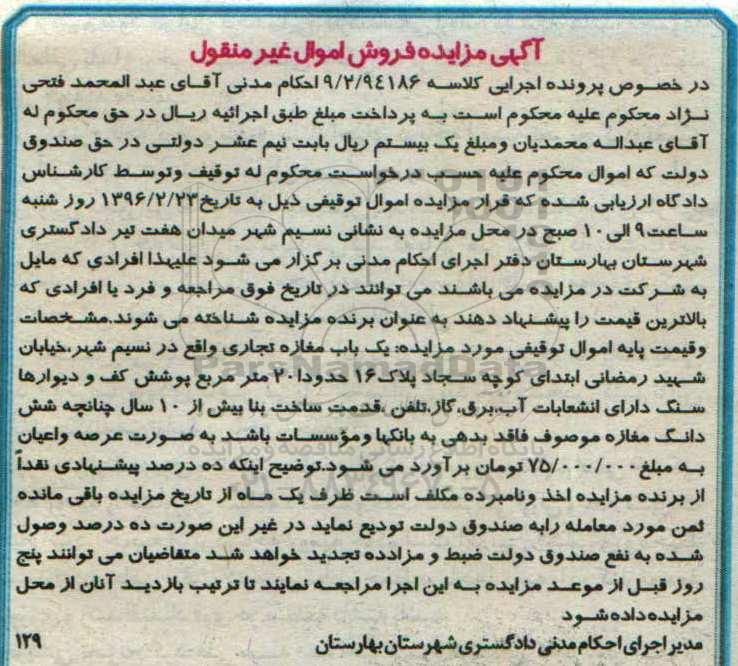 آگهی مزایده فروش اموال غیر منقول
در خصوص پرونده اجرایی کلاسه ۹/۲/۹٤۱۸۶ احکام مدنی آقای عبد المحمد فتحی
نژاد محکوم علیه محکوم است به پرداخت مبلغ طبق اجرائیه ریال در حق محکوم له
آقای عبداله محمدیان ومبلغ یک بیستم ریال بابت نیم عشر دولتی در حق صندوق
دولت که اموال محکوم علیه حسب درخواست محکوم له توقیف وتوسط کارشناس
دادگاه ارزیابی شده که قرار مزایده اموال توقیفی ذیل به تاریخ۱۳۹۶/۲/۲۳ روز شنبه
ساعت۹ الی۱۰ صبح در محل مزایده به نشانی نسیم شهر میدان هفت تیر دادگستری
شهرستان بهارستان دفتر اجرای احکام مدنی برگزار می شود علیهذا افرادی که مایل
به شرکت در مزایده می باشند می توانند در تاریخ فوق مراجعه و فرد یا افرادی که
بالاترین قیمت را پیشنهاد دهند به عنوان برنده مزایده شناخته می شوند.مشخصات
وقیمت پایه اموال توقیفی مورد مزایده: یک باب مغازه تجاری واقع در نسیم شهر،خیابان
شهید رمضانی ابتدای کوچه سجاد پلاک۱۶ حدودا۲۰ متر مربع پوشش کف و دیوارها
سنگ دارای انشعابات آب،برق،گاز،تلفن ،قدمت ساخت بنا بیش از ۱۰ سال چنانچه شش
دانگ مغازه موصوف فاقد بدهی به بانکها ومؤسسات باشد به صورت عرصه واعیان
به مبلغ ۷۵/۰۰۰/۰۰۰ تومان برآورد می شود.توضیح اینکه ده درصد پیشنهادی نقداً
از برنده مزایده اخذ ونامبرده مکلف است ظرف یک ماه از تاریخ مزایده باقی مانده
ثمن مورد معامله رابه صندوق دولت تودیع نماید در غیر این صورت ده درصد وصول
شده به نفع صندوق دولت ضبط و مزادده تجدید خواهد شد متقاضیان می توانند پنج
روز قبل از موعد مزایده به این اجرا مراجعه نمایند تا ترتیب بازدید آنان از محل
مزایده داده شود
مدیر اجرای احکام مدنی دادگستری شهرستان بهارستان
۱۲۹
ParsNamadData
پایگاه اطلاع رسانی مناقصه و مزایده